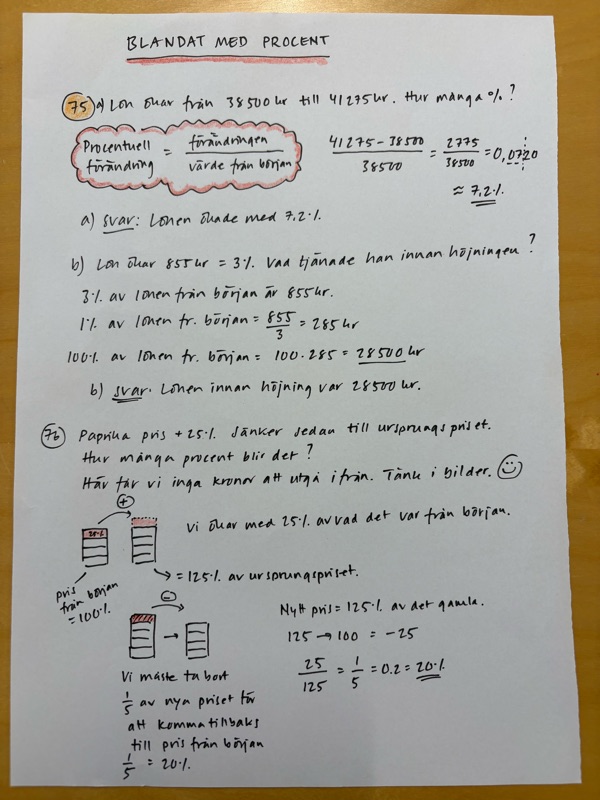 BLANDAT MED PROCENT
75 a) Lön ökar från 38500 kr till 41275 kr. Hur många %?
Procentuell förändring = förändringen / värde från början
41275 - 38500 / 38500 = 2775 / 38500 = 0,0720
≈ 7,2%
a) svar: Lönen ökade med 7,2%
b) Lön ökar 855 kr = 3%. Vad tjänade han innan höjningen?
3% av lönen från början är 855 kr.
1% av lönen fr. början = 855/3 = 285 kr
100% av lönen fr. början = 100·285 = 28500 kr
b) svar. Lönen innan höjning var 28500 kr.
76 Paprika pris +25%. Sänker sedan till ursprungspriset.
Hur många procent blir det?
Här får vi inga kronor att utgå ifrån. Tänk i bilder. ☺
+
25%
Vi ökar med 25% av vad det var från början.
= 125% av ursprungspriset.
pris
från början
= 100%
-
Nytt pris = 125% av det gamla.
125 → 100 = -25
25/125 = 1/5 = 0.2 = 20%
Vi måste ta bort
1/5 av nya priset för
att komma tillbaks
till pris från början
1/5 = 20%